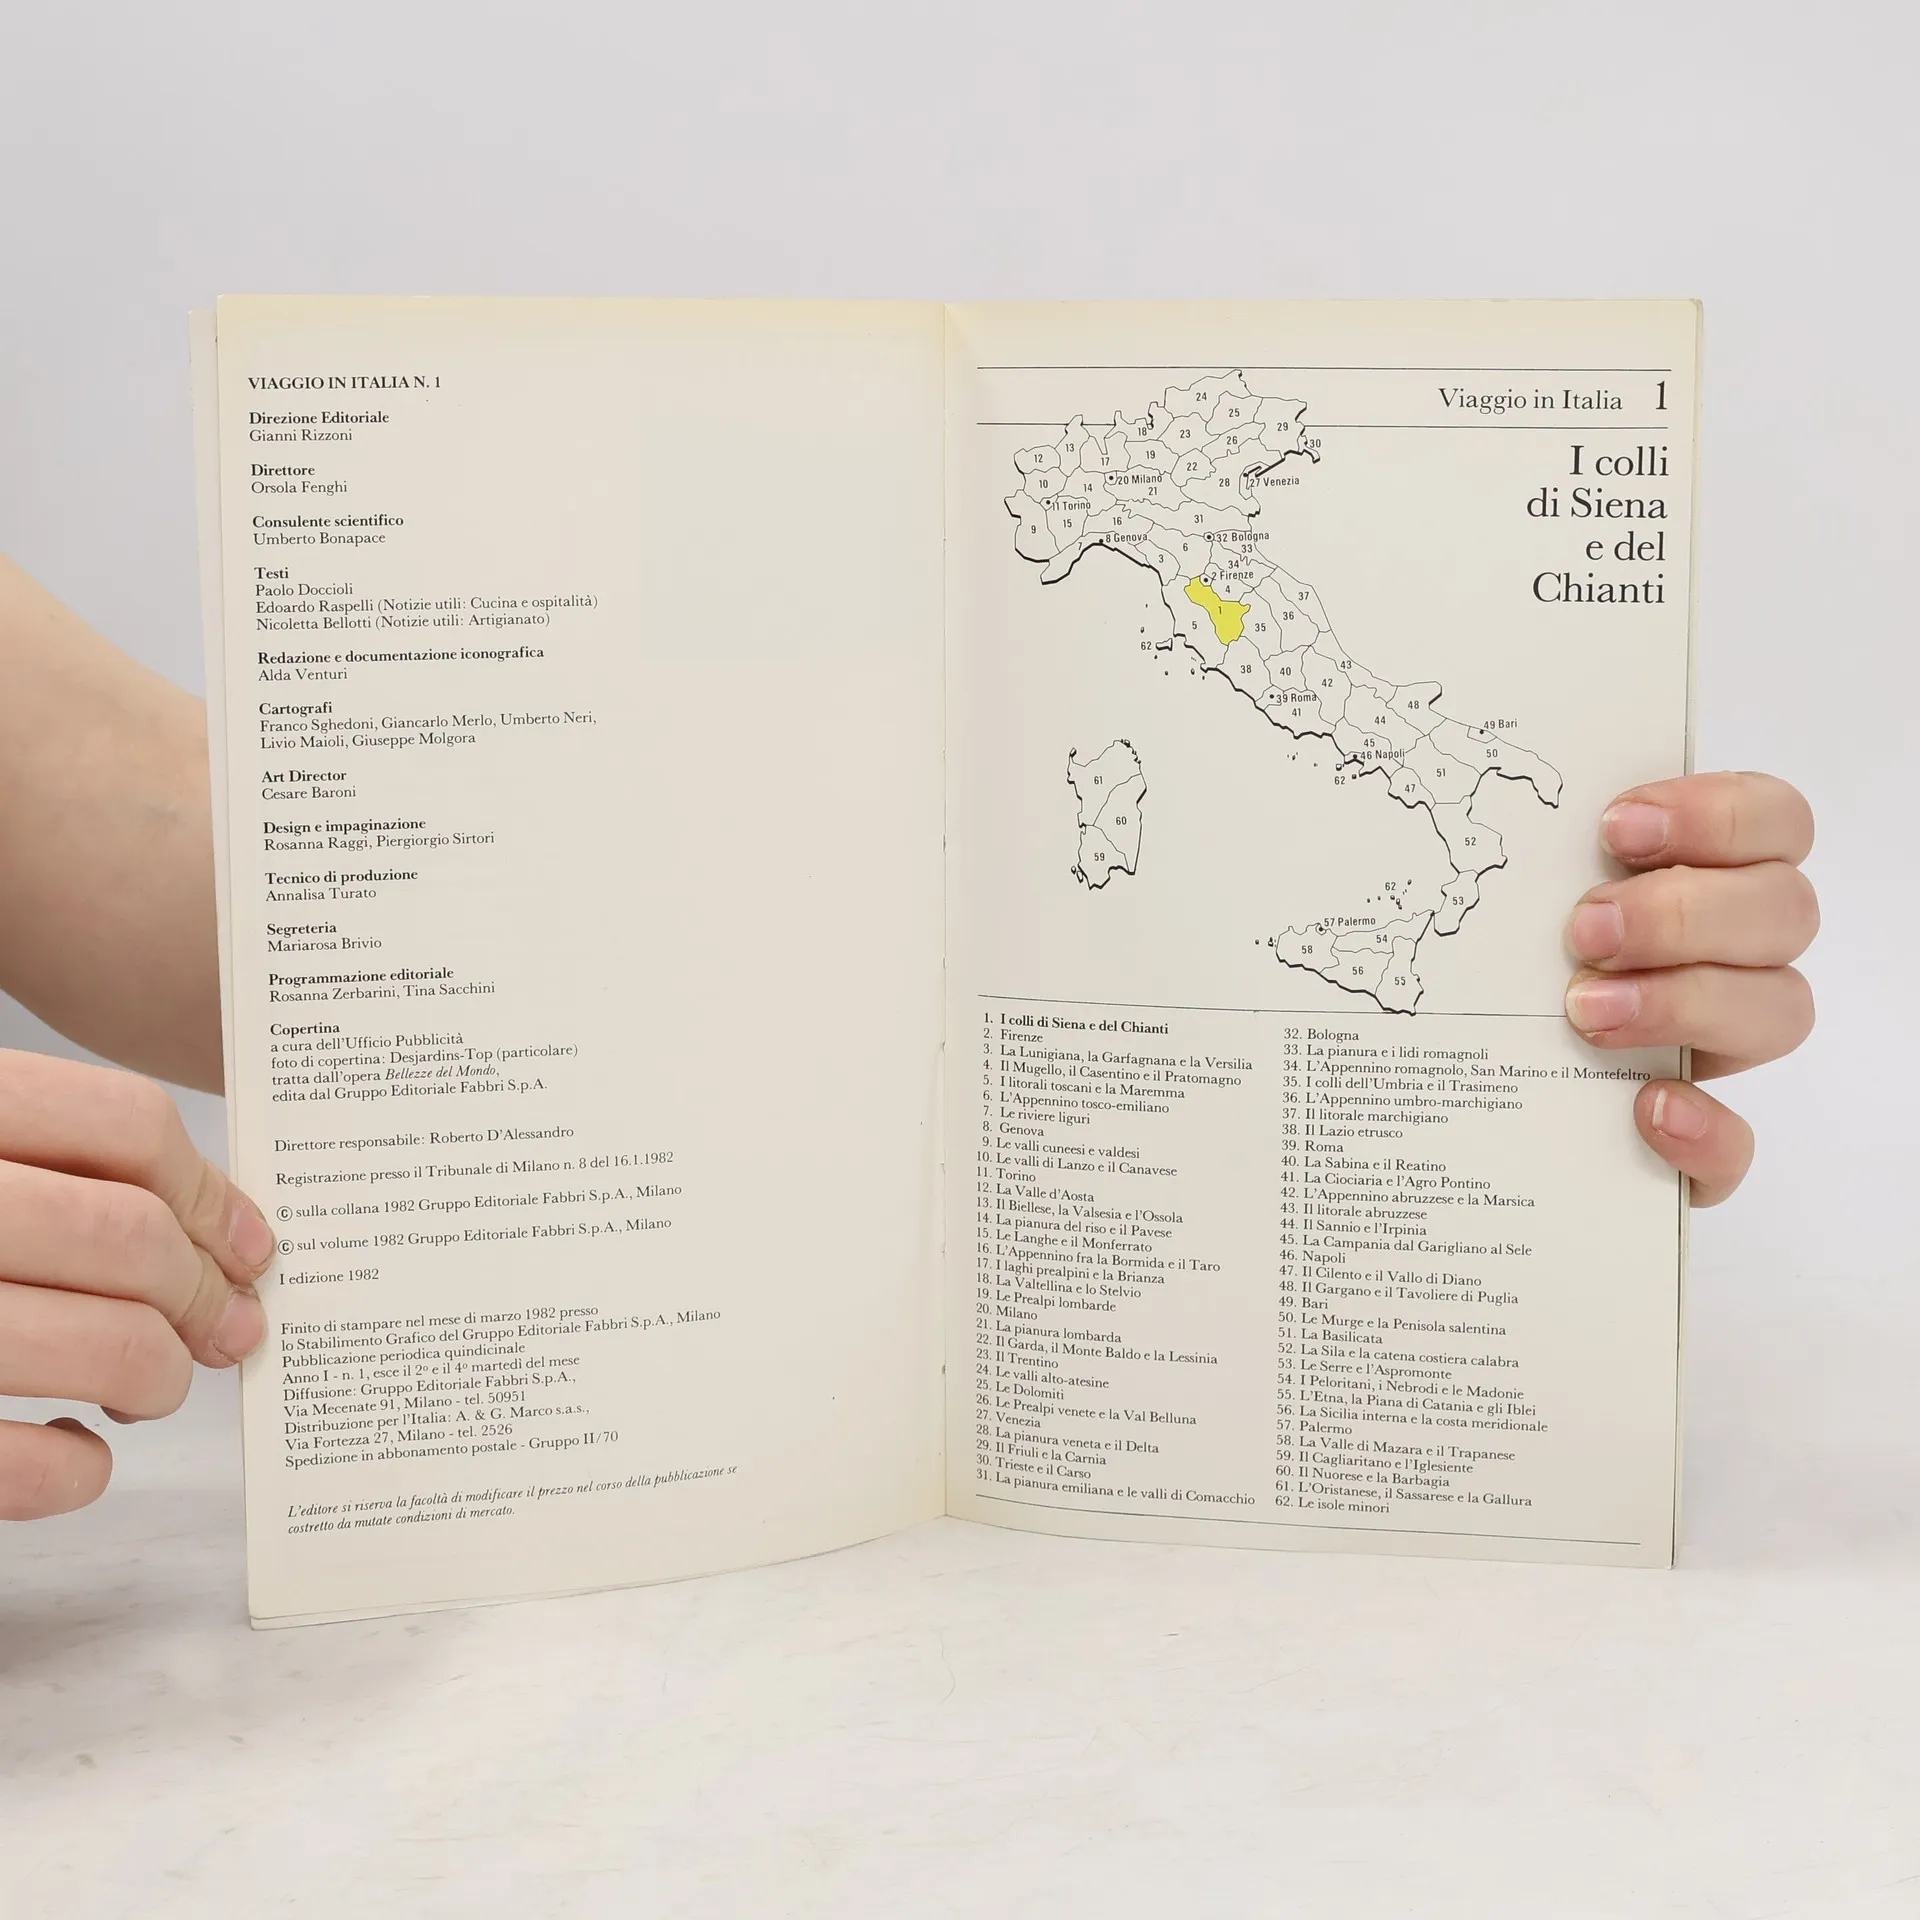 VIAGGIO IN ITALIA N. 1
Direzione Editoriale
Gianni Rizzoni
Direttore
Orsola Fenghi
Consulente scientifico
Umberto Bonapace
Testi
Paolo Doccioli
Edoardo Raspelli (Notizie utili: Cucina e ospitalità)
Nicoletta Bellotti (Notizie utili: Artigianato)
Redazione e documentazione iconografica
Alda Venturi
Cartografi
Franco Sghedoni, Giancarlo Merlo, Umberto Neri,
Livio Maioli, Giuseppe Molgora
Art Director
Cesare Baroni
Design e impaginazione
Rosanna Raggi, Piergiorgio Sirtori
Tecnico di produzione
Annalisa Turato
Segreteria
Mariarosa Brivio
Programmazione editoriale
Rosanna Zerbarini, Tina Sacchini
Copertina
a cura dell'Ufficio Pubblicità
foto di copertina: Desjardins-Top (particolare)
tratta dall'opera Bellezze del Mondo,
edita dal Gruppo Editoriale Fabbri S.p.A.
Direttore responsabile: Roberto D'Alessandro
Registrazione presso il Tribunale di Milano n. 8 del 16.1.1982
© sulla collana 1982 Gruppo Editoriale Fabbri S.p.A., Milano
© sul volume 1982 Gruppo Editoriale Fabbri S.p.A., Milano
I edizione 1982
Finito di stampare nel mese di marzo 1982 presso
lo Stabilimento Grafico del Gruppo Editoriale Fabbri S.p.A., Milano
Pubblicazione periodica quindicinale
Anno I - n. 1, esce il 2º e il 4º martedì del mese
Diffusione: Gruppo Editoriale Fabbri S.p.A.,
Via Mecenate 91, Milano - tel. 50951
Distribuzione per l'Italia: A. & G. Marco s.a.s.,
Via Fortezza 27, Milano - tel. 2526
Spedizione in abbonamento postale - Gruppo II/70
L'editore si riserva la facoltà di modificare il prezzo nel corso della pubblicazione se
costretto da mutate condizioni di mercato.
Viaggio in Italia 1
I colli
di Siena
e del
Chianti
24
25
29
18
23
26
30
13
12
17
19
22
10
14
20 Milano
21
28
27 Venezia
11 Torino
9
15
16
31
7
8 Genova
6
32 Bologna
33
3
34
2 Firenze
4
37
1
36
5
35
62
38
40
43
42
39 Roma
41
48
44
49 Bari
45
46 Napoli
50
62
51
47
61
60
59
52
62
53
57 Palermo
54
58
56
55
1. I colli di Siena e del Chianti
2. Firenze
3. La Lunigiana, la Garfagnana e la Versilia
4. Il Mugello, il Casentino e il Pratomagno
5. I litorali toscani e la Maremma
6. L'Appennino tosco-emiliano
7. Le riviere liguri
8. Genova
9. Le valli cuneesi e valdesi
10. Le valli di Lanzo e il Canavese
11. Torino
12. La Valle d'Aosta
13. Il Biellese, la Valsesia e l'Ossola
14. La pianura del riso e il Pavese
15. Le Langhe e il Monferrato
16. L'Appennino fra la Bormida e il Taro
17. I laghi prealpini e la Brianza
18. La Valtellina e lo Stelvio
19. Le Prealpi lombarde
20. Milano
21. La pianura lombarda
22. Il Garda, il Monte Baldo e la Lessinia
23. Il Trentino
24. Le valli alto-atesine
25. Le Dolomiti
26. Le Prealpi venete e la Val Belluna
27. Venezia
28. La pianura veneta e il Delta
29. Il Friuli e la Carnia
30. Trieste e il Carso
31. La pianura emiliana e le valli di Comacchio
32. Bologna
33. La pianura e i lidi romagnoli
34. L'Appennino romagnolo, San Marino e il Montefeltro
35. I colli dell'Umbria e il Trasimeno
36. L'Appennino umbro-marchigiano
37. Il litorale marchigiano
38. Il Lazio etrusco
39. Roma
40. La Sabina e il Reatino
41. La Ciociaria e l'Agro Pontino
42. L'Appennino abruzzese e la Marsica
43. Il litorale abruzzese
44. Il Sannio e l'Irpinia
45. La Campania dal Garigliano al Sele
46. Napoli
47. Il Cilento e il Vallo di Diano
48. Il Gargano e il Tavoliere di Puglia
49. Bari
50. Le Murge e la Penisola salentina
51. La Basilicata
52. La Sila e la catena costiera calabra
53. Le Serre e l'Aspromonte
54. I Peloritani, i Nebrodi e le Madonie
55. L'Etna, la Piana di Catania e gli Iblei
56. La Sicilia interna e la costa meridionale
57. Palermo
58. La Valle di Mazara e il Trapanese
59. Il Cagliaritano e l'Iglesiente
60. Il Nuorese e la Barbagia
61. L'Oristanese, il Sassarese e la Gallura
62. Le isole minori